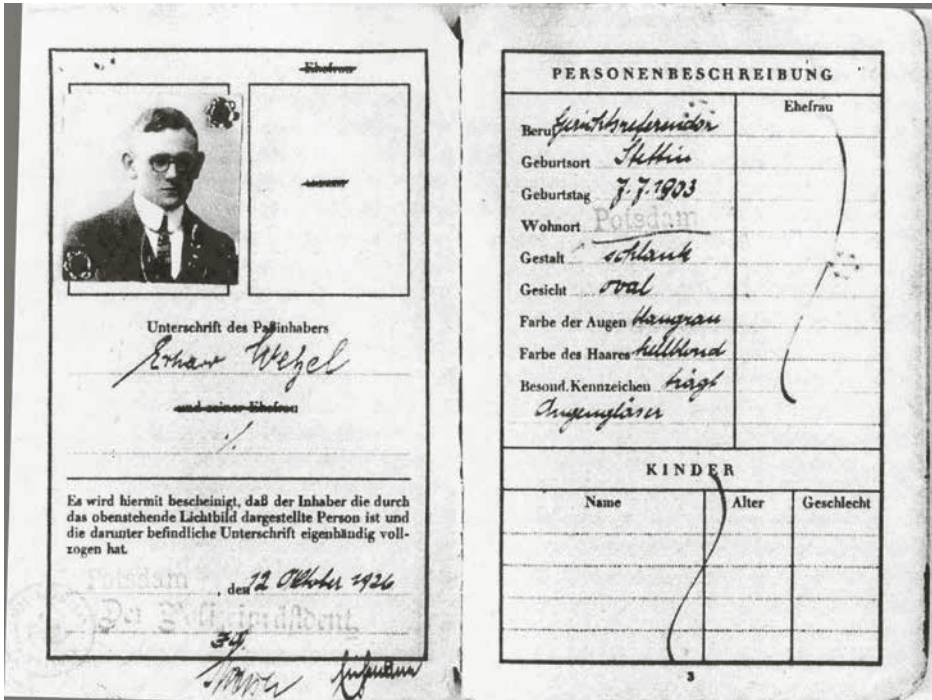 Ehefrau
Unterschrift des Paßinhabers
Erhard Wetzel
und seiner Ehefrau
Es wird hiermit bescheinigt, daß der Inhaber die durch
das obenstehende Lichtbild dargestellte Person ist und
die darunter befindliche Unterschrift eigenhändig voll-
zogen hat.
Potsdam, den 12 Oktober 1926
Der Polizeipräsident
PERSONENBESCHREIBUNG
Ehefrau
Beruf Gerichtsreferendar
Geburtsort Stettin
Geburtstag 7.7.1903
Wohnort Potsdam
Gestalt schlank
Gesicht oval
Farbe der Augen blaugrau
Farbe des Haares hellblond
Besond. Kennzeichen trägt
Augengläser
KINDER
Name Alter Geschlecht
3